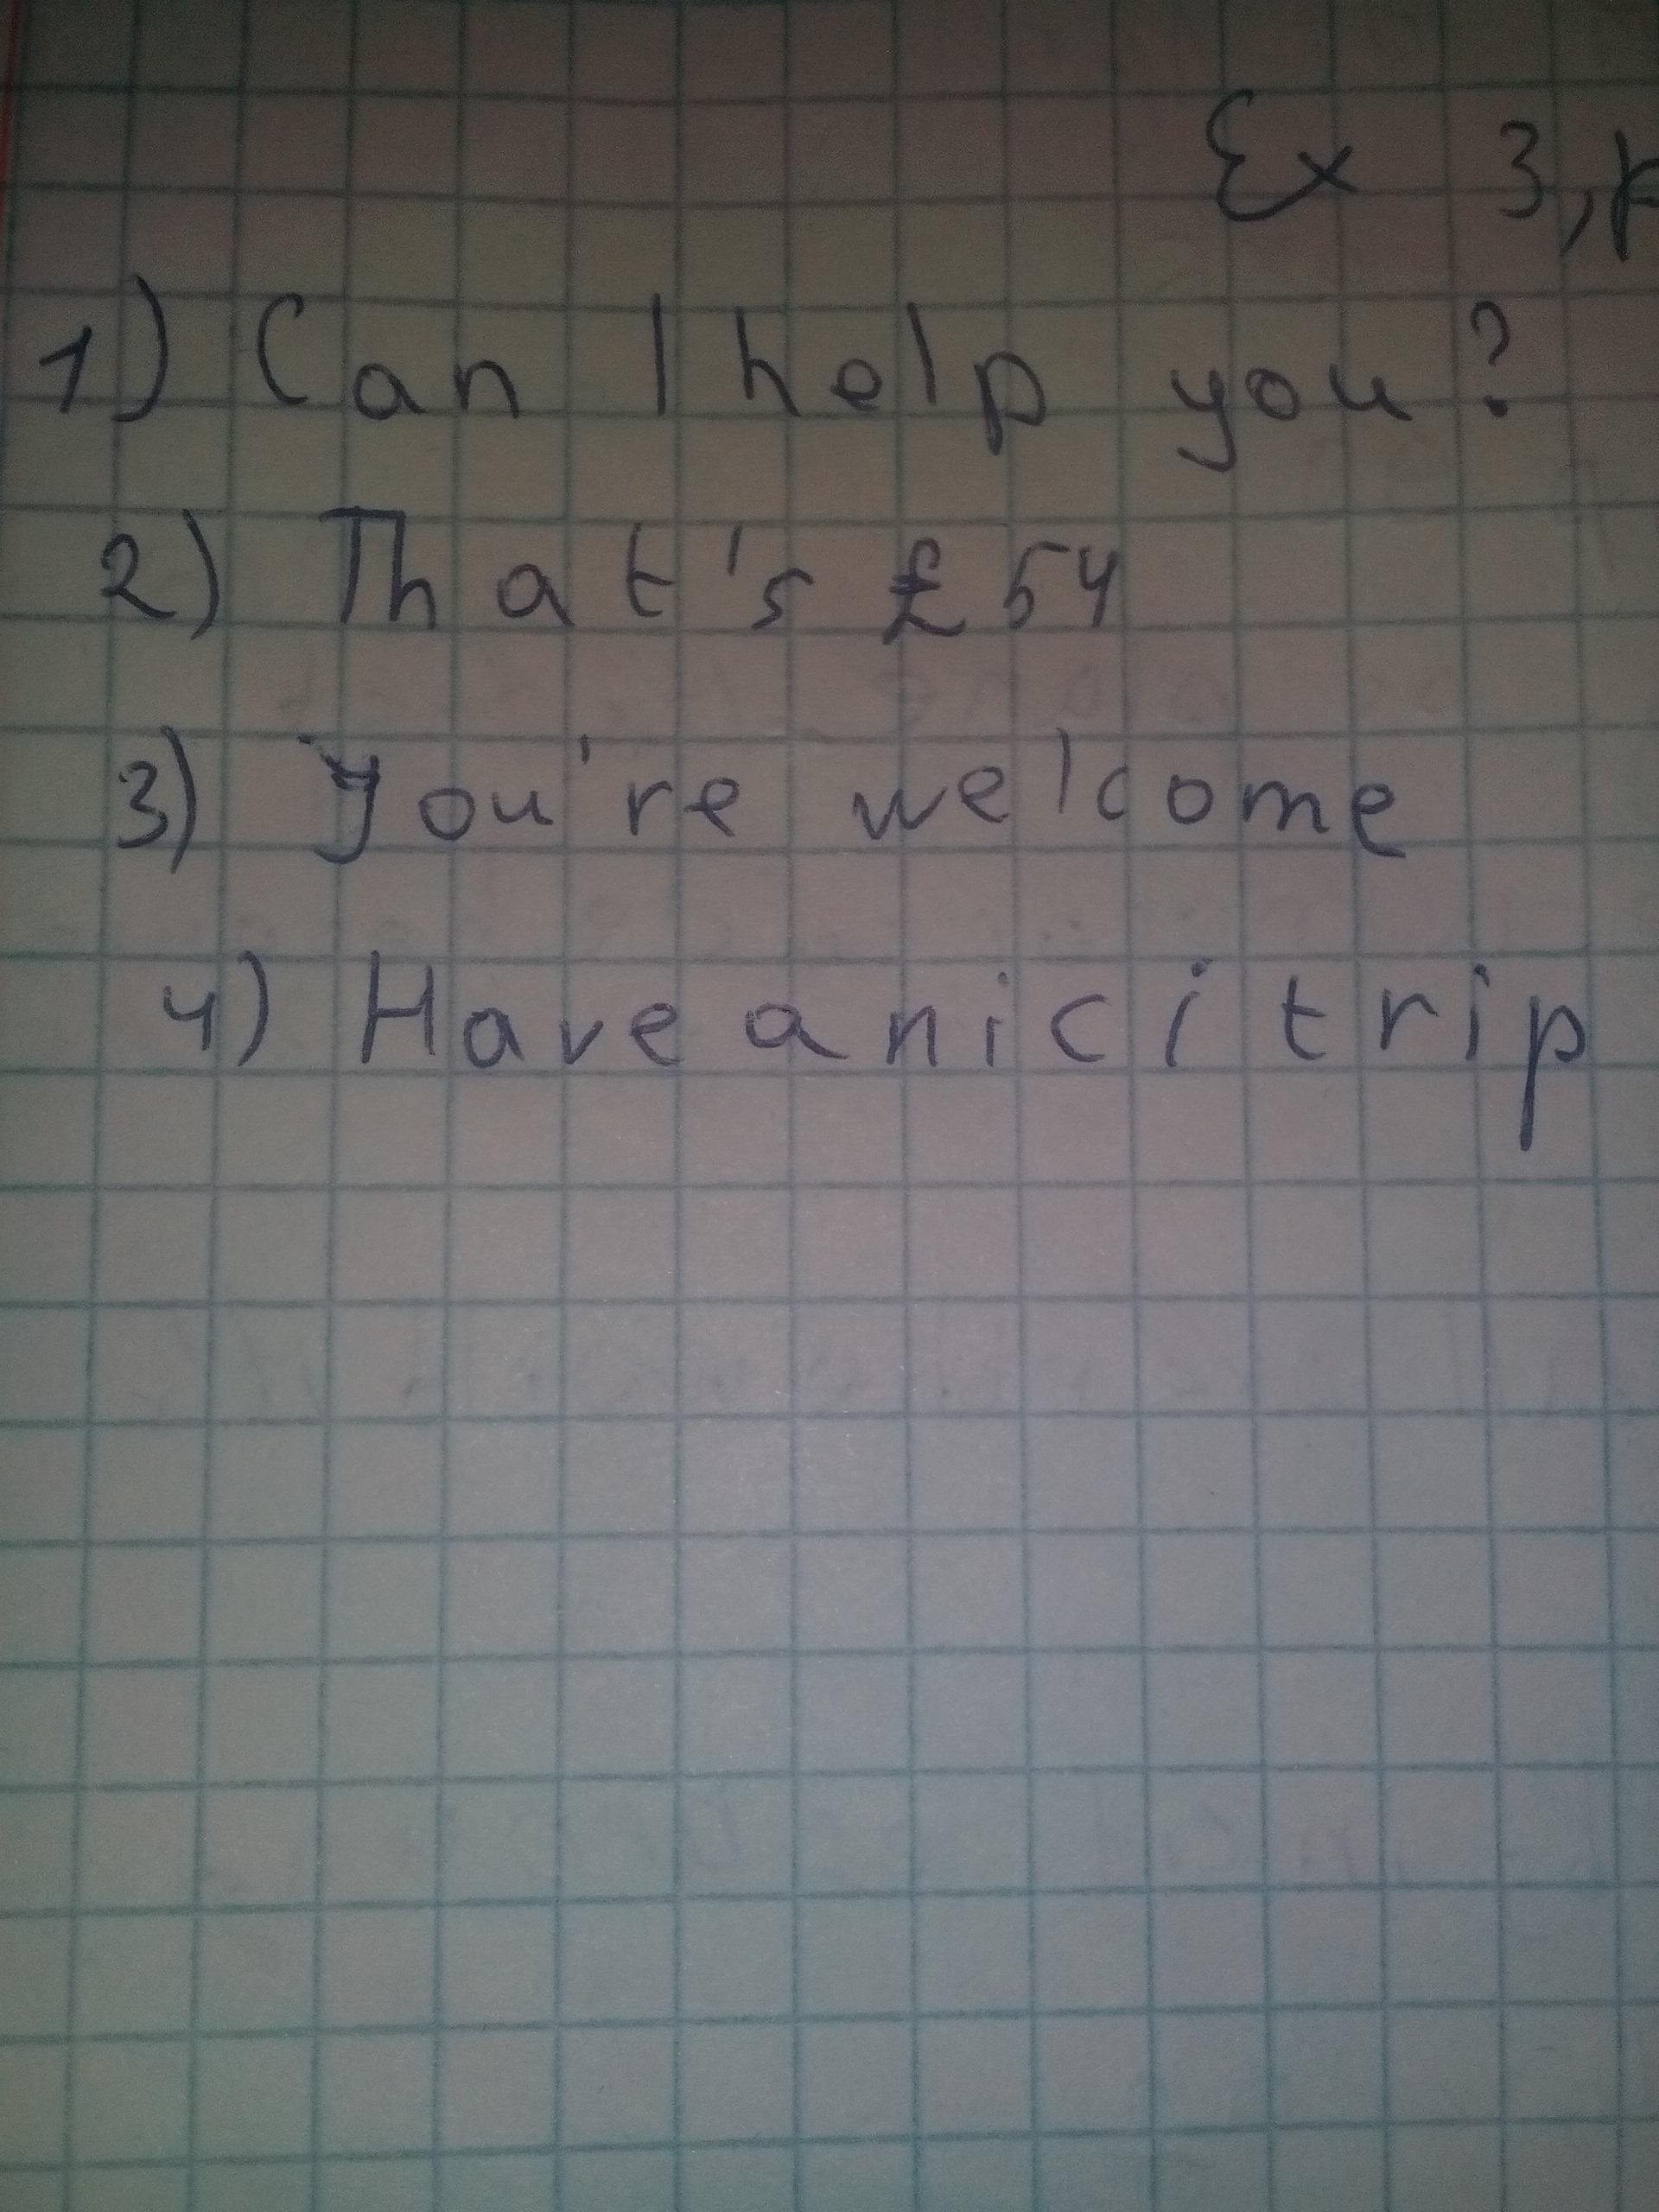 Ex 3, p
1) Can I help you?
2) That's £54
3) You're welcome
4) Have a nici trip